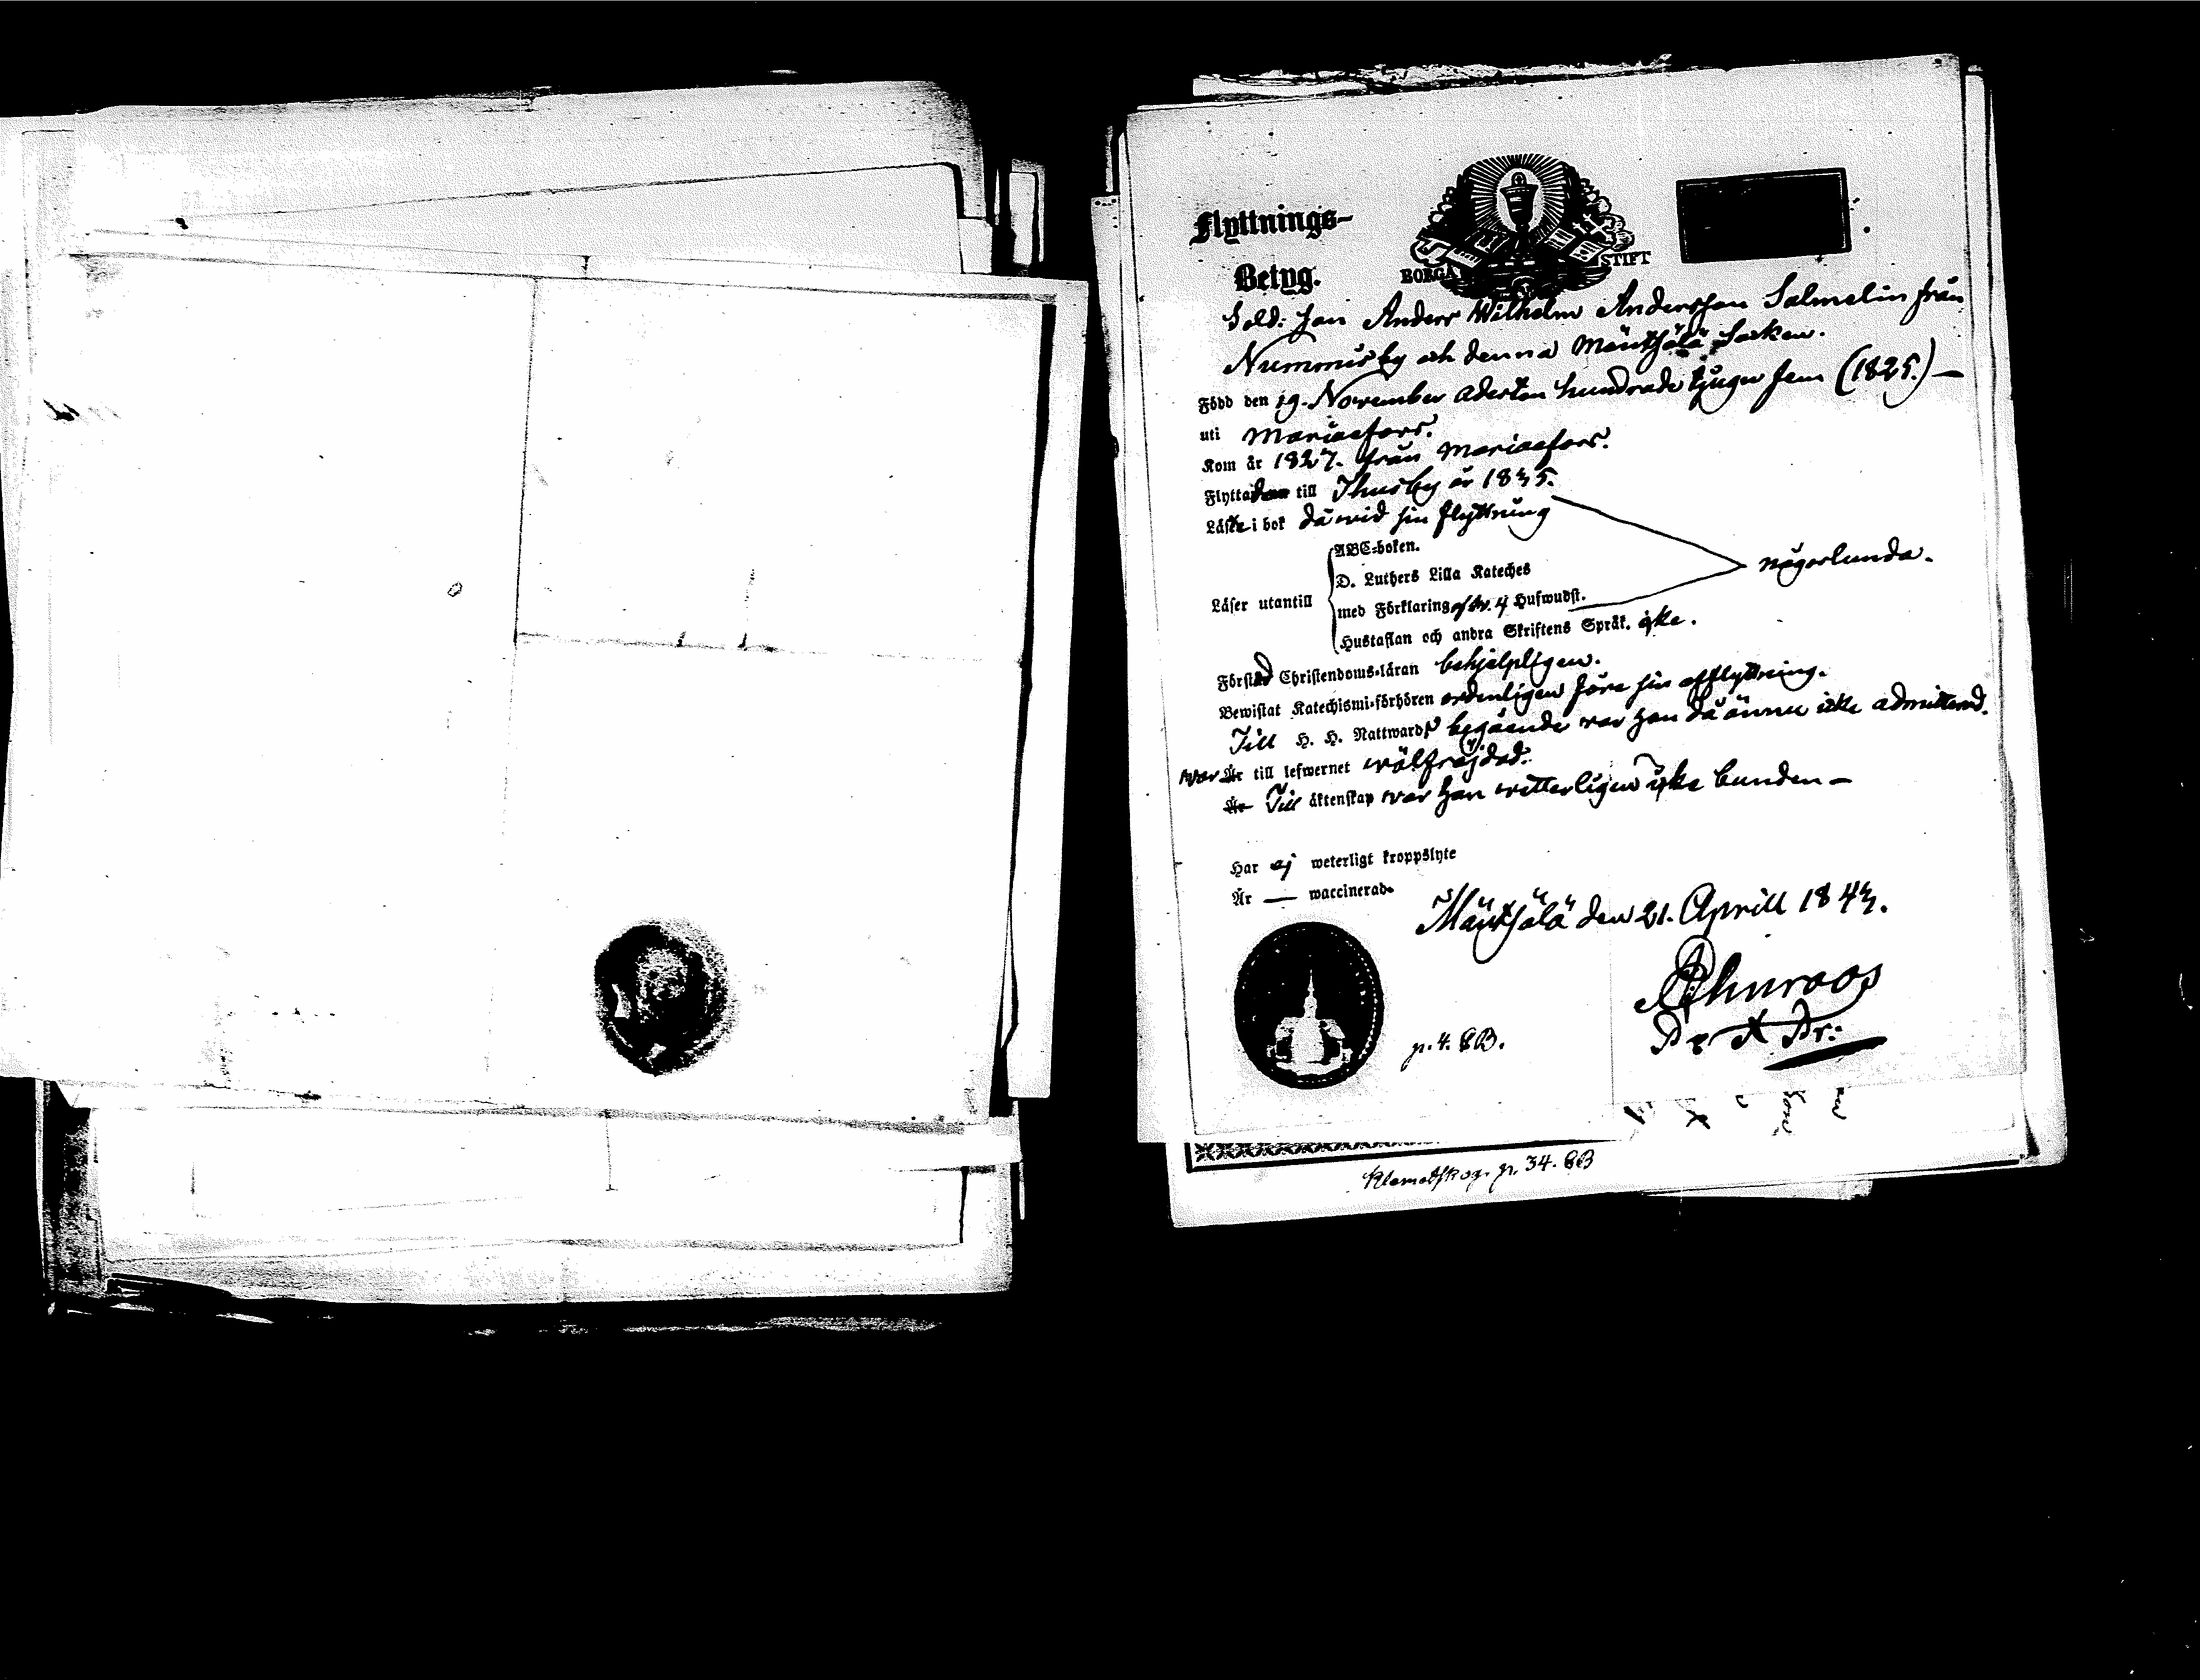 Flyttnings-
Betyg.
BORGÅ STIFT
Sold: Son Anders Wilhelm Andersson Salmelin från
Nummisby och denna Mäntsälä Socken.
Född den 19. November adertonhundrade tjugu fem (1825.) —
uti Mariaefors.
Kom år 1827. från Mariaefors.
Flyttade till Thusby år 1835.
Läste i bok då wid sin flyttning
ABC-boken.
D. Luthers Lilla Kateches
någorlunda.
Läser utantill
med Förklaring öfwer 4 Hufwudst.
Hustaflan och andra Skriftens Språk. icke.
Förstod Christendoms-läran behjelpligen.
Bewistat Katechismi-förhören ordentligen före sin afflyttning.
Till H. H. Nattwards begående war han då ännu icke admitterad.
war Är till lefwernet wälfrejdad.
Är Till äktenskap war han wetterligen icke bunden —
Har ej weterligt kroppslyte
Är — waccinerad.
Mäntsälä den 21. Aprill 1843.
Ahnroos
p. 4. CB.
Klemetskog. p. 34. CB